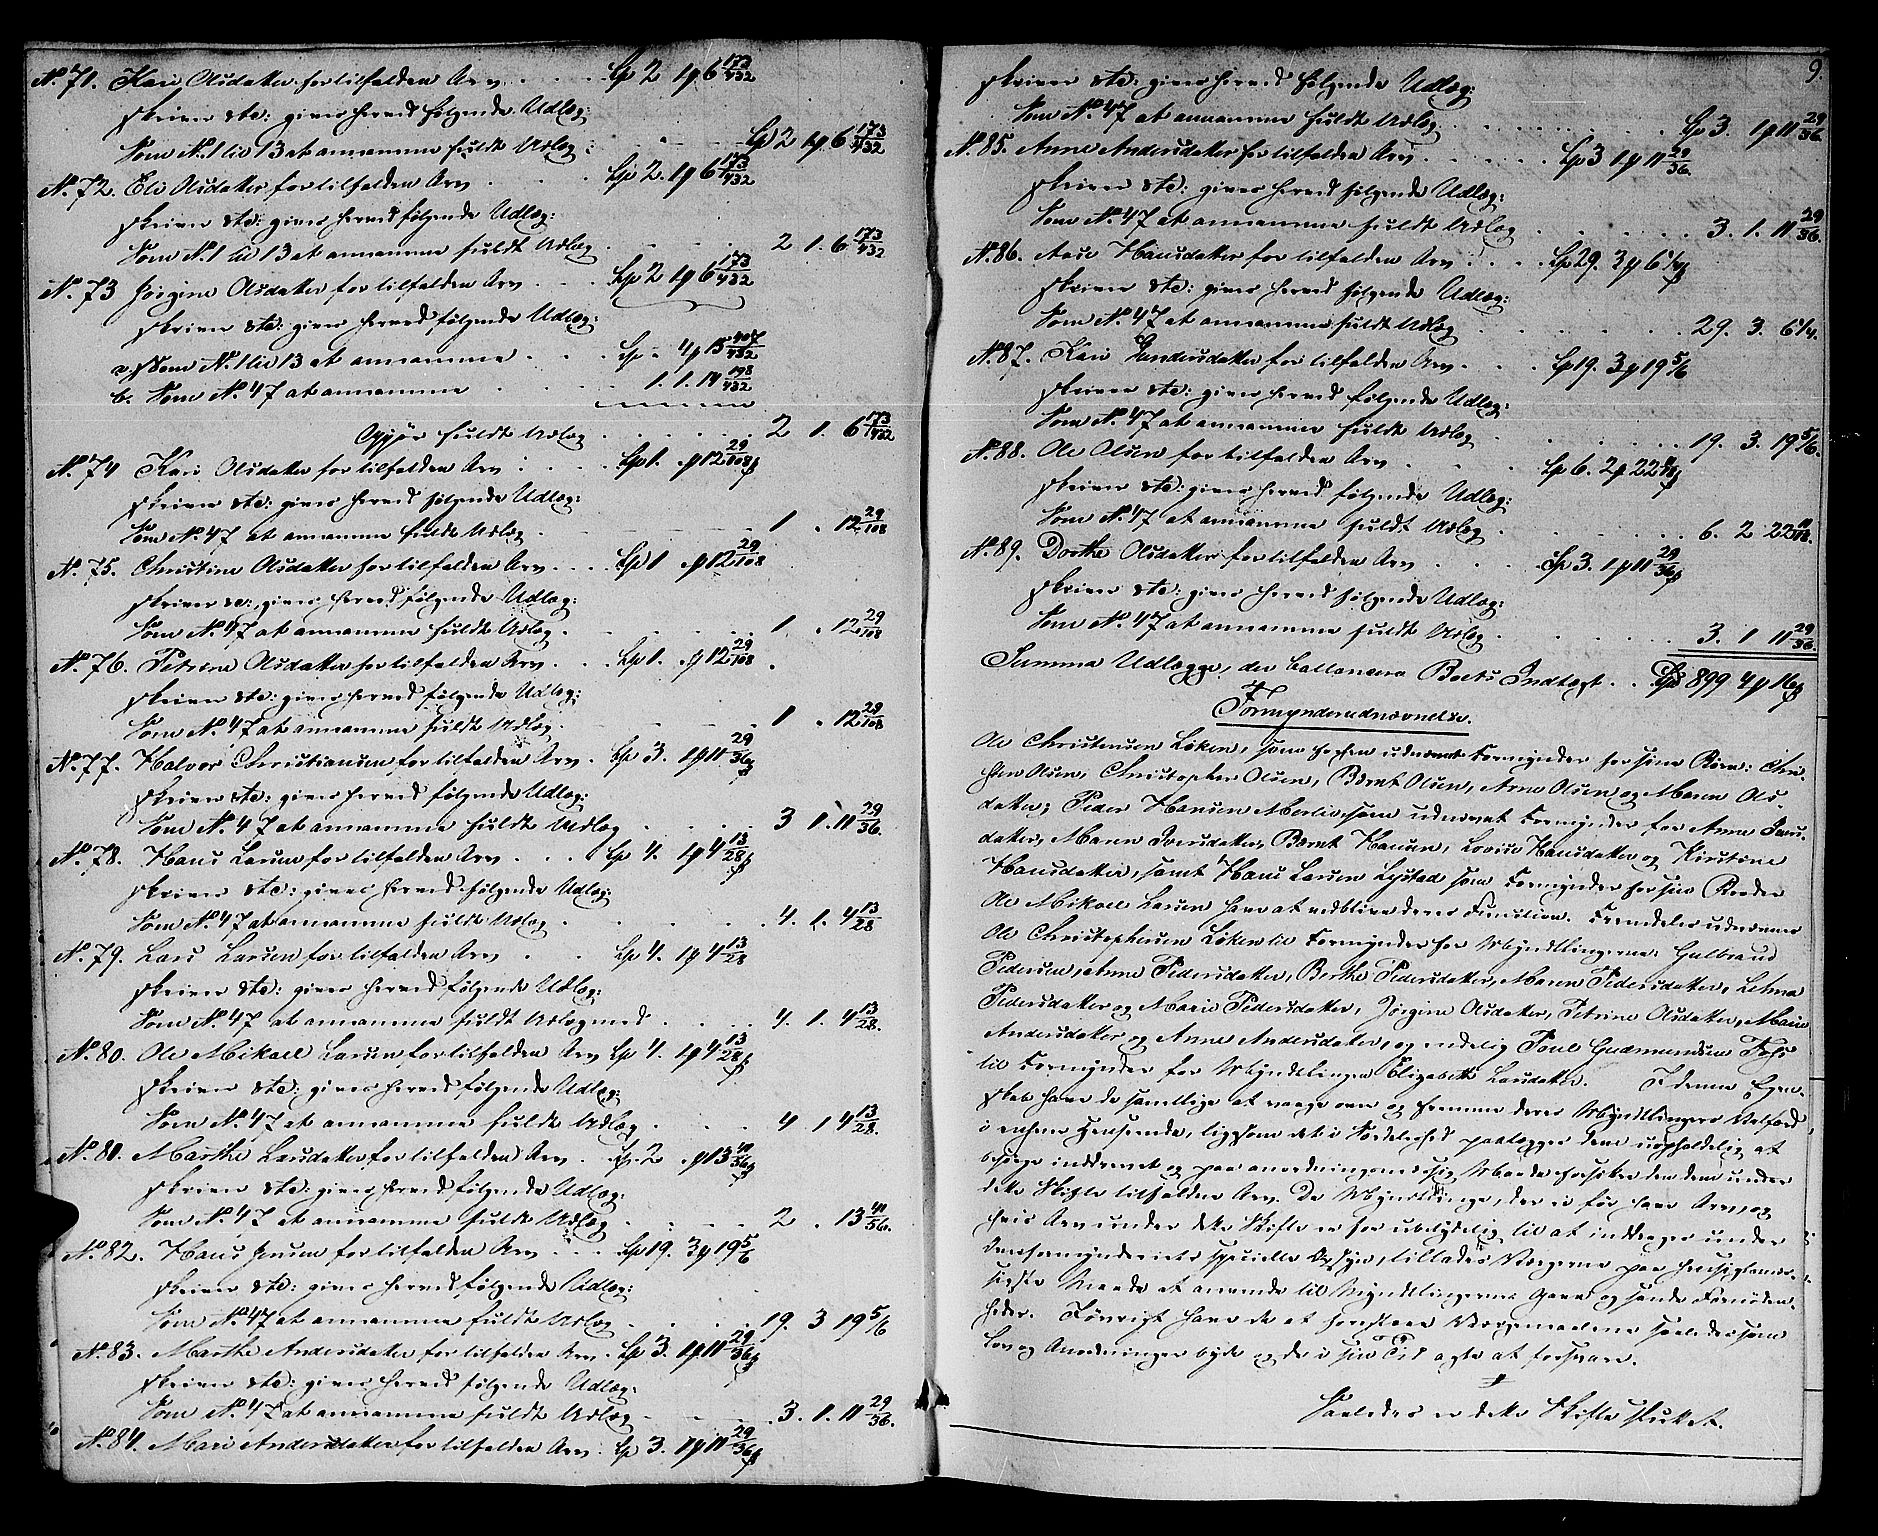 No. 71. Kari Olsdatter for tilfalden Arv . . . . Sp 2 1 6 173/432
skriver etc: gives herved følgende Udlæg:
Som No. 1 til 13 at annamme fuldt Udlæg: Sp 2 1 6 173/432
No. 72. Eli Olsdatter for tilfalden Arv . . . . Sp 2. 1 6 173/432
skriver etc: gives herved følgende Udlæg:
Som No. 1 til 13 at annamme fuldt Udlæg 2 1. 6 173/432
No. 73 Jørgine Olsdatter for tilfalden Arv . . . Sp 2 1 6 173/432
skriver etc: gives herved følgende Udlæg:
a, Som No. 1 til 13 at annamme . . . Sp " 4 15 407/432
b. Som No. 47 at annamme 1. 1. 14 198/432
Opgjør fuldt Udlæg 2 1. 6 173/432
No. 74 Kari Olsdatter for tilfalden Arv . . . Sp 1. " 12 29/108
skriver etc: gives herved følgende Udlæg:
Som No. 47 at annamme fuldt Udlæg 1 " 12 29/108
No. 75. Christine Olsdatter for tilfalden Arv . . . Sp 1 " 12 29/108
skriver etc:, gives herved følgende Udlæg:
Som No. 47 at annamme fuldt Udlæg. 1 " 12 29/108
No. 76. Petrine Olsdatter for tilfalden Arv . . . Sp 1. " 12 29/108
skriver etc: gives herved følgende Udlæg:
Som No. 47 at annamme fuldt Udlæg 1 " 12 29/108
No. 77. Halvor Christiansen for tilfalden Arv . Sp 3. 1 11 29/36
skriver etc: gives herved følgende Udlæg:
Som No. 47 at annamme fuldt Udlæg 3 1. 11 29/36.
No. 78. Hans Larsen for tilfalden Arv . . . Sp 4. 1 4 13/28
skriver etc: gives herved følgende Udlæg:
Som No. 47 at annamme fuldt Udlæg 4. 1. 4 13/28
No. 79. Lars Larsen for tilfalden Arv . . Sp 4. 1 4 13/28
skriver etc: gives herved følgende Udlæg:
Som No. 47 at annamme fuldt Udlæg med 4. 1. 4 13/28.
No. 80. Ole Mikael Larsen for tilfalden Arv Sp 4. 1 4 13/28
skriver etc: gives herved følgende Udlæg:
Som No. 47 at annamme fuldt Udlæg 4 1 4 13/28.
No. 81. Marthe Larsdatter for tilfalden Arv . Sp 2 " 13 41/56
skriver etc: gives herved følgende Udlæg:
Som No. 47 at annamme fuldt Udlæg 2 . 13 41/56.
No. 82. Hans Jensen for tilfalden Arv . . . Sp 19. 3 19 5/6
skriver etc: gives herved følgende Udlæg:
Som No. 47 at annamme fuldt Udlæg 19. 3 19 5/6
No. 83. Marthe Andersdatter for tilfalden Arv . Sp 3. 1 11 29/36
skriver etc: gives herved følgende Udlæg:
Som No. 47 at annamme fuldt Udlæg 3. 1. 11 29/36.
No. 84. Mari Andersdatter for tilfalden Arv . Sp 3. 1 11 29/36
9.
skriver etc: gives herved følgende Udlæg:
Som No. 47 at annamme fuldt Udlæg Sp 3. 1 11 29/36.
No. 85. Anne Andersdatter for tilfalden Arv . . . Sp 3 1 11 29/36.
skriver etc: gives herved følgende Udlæg:
Som No. 47 at annamme fuldt Udlæg 3. 1. 11 29/36.
No. 86. Aase Hansdatter for tilfalden Arv . . . Sp 29. 3 6 1/4
skriver etc: gives herved følgende Udlæg:
Som No. 47 at annamme fuldt Udlæg 29. 3. 6 1/4.
No. 87. Kari Gundersdatter for tilfalden Arv . . . Sp 19. 3 19 5/6
skriver etc: gives herved følgende Udlæg:
Som No. 47 at annamme fuldt Udlæg 19. 3. 19 5/6.
No. 88. Ole Olsen for tilfalden Arv . . . Sp 6. 2 22
skriver etc: gives herved følgende Udlæg:
Som No. 47 at annamme fuldt Udlæg 6. 2 22
No. 89. Dorthe Olsdatter for tilfalden Arv . . . Sp 3. 1 11 29/36
skriver etc: gives herved følgende Udlæg:
Som No. 47 at annamme fuldt Udlæg 3. 1 11 29/36.
Summa Udlægge, der ballancera Boets Indtægt . . Sp 899 4 16
Formynderudnævnelse.
Ole Christensen Løken, som forhen udnævnt Formynder for sine Børn: Chri-
sten Olsen, Christopher Olsen, Bernt Olsen, Arne Olsen og Maren Ols-
datter; Peder Hansen Merlie som udnævnt Formynder for Anne Iver-
datter, Maren Iversdatter, Bernt Hansen, Lovise Hansdatter og Kirstine
Hansdatter, samt Hans Larsen Lystad som Formynder for sin Broder
Ole Mikael Larsen have at vedblive deres Function. Fremdeles udnævnes
Ole Christophersen Løken til Formynder for Myndlingerne: Gulbrand
Pedersen, Anne Pedersdatter, Berthe Pedersdatter, Maren Pedersdatter, Helena
Pedersdatter og Marie Pedersdatter, Jørgine Olsdatter, Petrine Olsdatter, Marie
Andersdatter og Anne Andersdatter, og endelig Poul Gudmundsen
til Formynder for Myndlingen Elizabeth Larsdatter. I denne Egen-
skab have de samtlige at vaage over og fremme deres Myndlingers Velfærd
i enhver Henseende, ligesom det i Særdeleshed paalægges dem uopholdelig at
besørge inddrevet og paa anordningsmæssig Maade forsikre den dem under
dette Skifte tilfaldne Arv. De Myndlinge, der ei før have Arv, og
hvis Arv under dette Skifte er for ubetydelig til at inddrages under
Overformynderiets specielle Opsyn, tillades Værgerne paa hensigtsmæs-
sigste Maade at anvende til Myndlingernes Gavn og sande Fornøden-
heder. Iøvrigt have de at forestaae Værgemaalene saaledes som
Lov og Anordninger byde og de i sin Tid agte at forsvare.
Saaledes er dette Skifte sluttet.